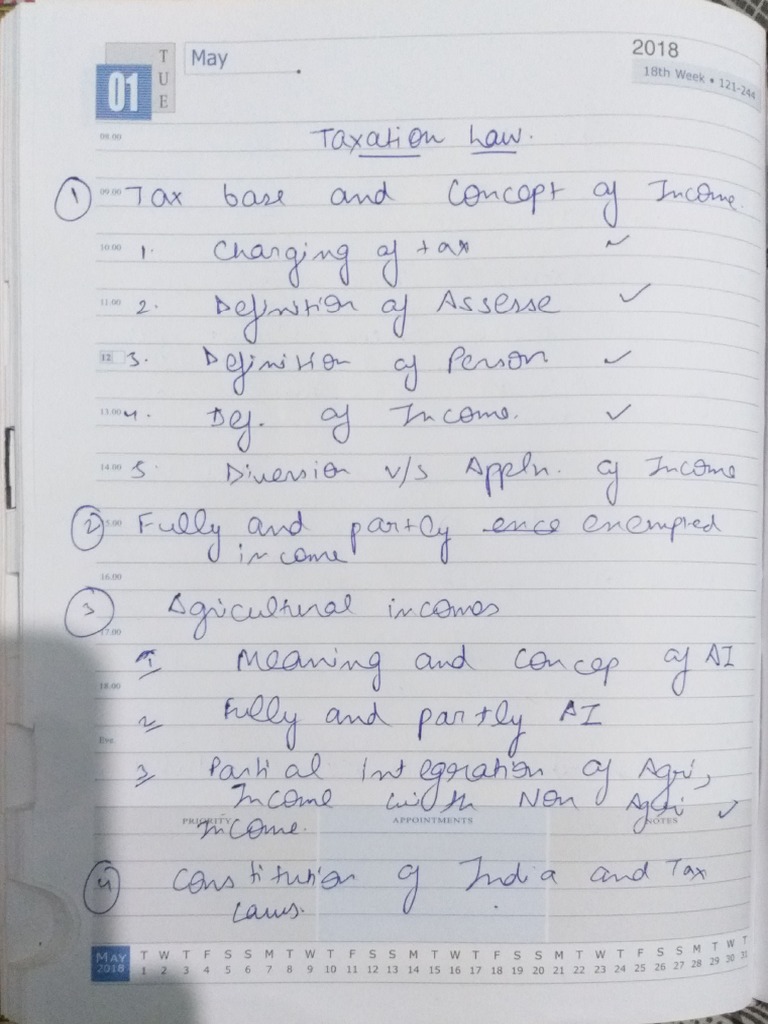 01 TUE May 2018
18th Week • 121-244
08.00 Taxation Law.
① 09.00 Tax base and Concept of Income.
10.00 1. Charging of tax ✓
11.00 2. Definition of Assesse ✓
12 3. Definition of Person ✓
13.00 4. Def. of Income. ✓
14.00 5. Diversion v/s Appln. of Income
② 15.00 Fully and partly ence exempted
income
16.00
③ Agricultural incomes
17.00
1 Meaning and concep of AI
18.00
2 Fully and partly AI
Eve.
3 Partial integration of Agri,
Income with Non Agri ✓
PRIORITY APPOINTMENTS NOTES
income.
④ Constitution of India and Tax
Laws.
MAY T W T F S S M T W T F S S M T W T F S S M T W T F S S M T W T
2018 1 2 3 4 5 6 7 8 9 10 11 12 13 14 15 16 17 18 19 20 21 22 23 24 25 26 27 28 29 30 31